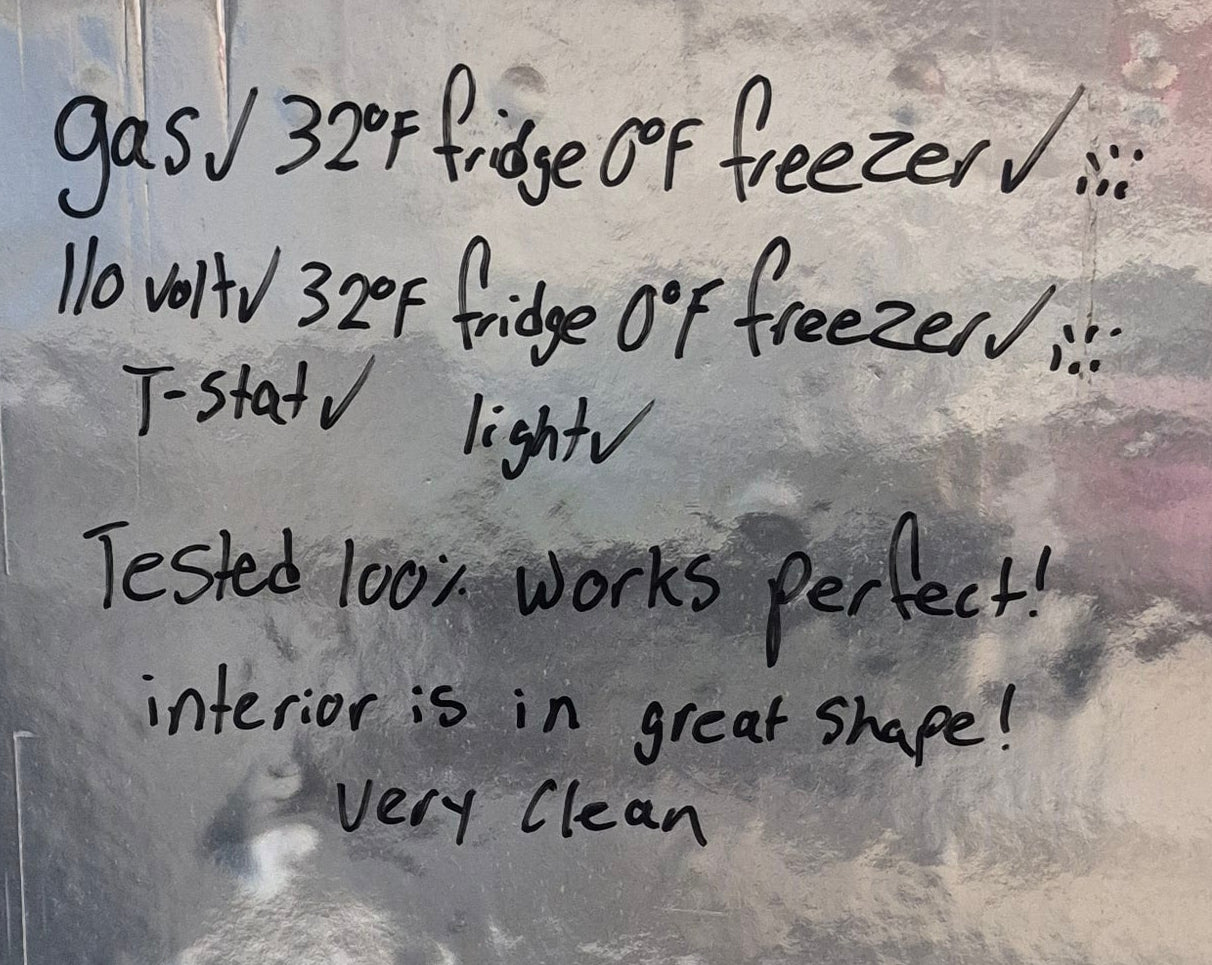 gas✓ 32°F fridge 0°F freezer✓
110 volt✓ 32°F fridge 0°F freezer✓
T-stat✓ light✓
Tested 100% works perfect!
interior is in great shape!
Very Clean